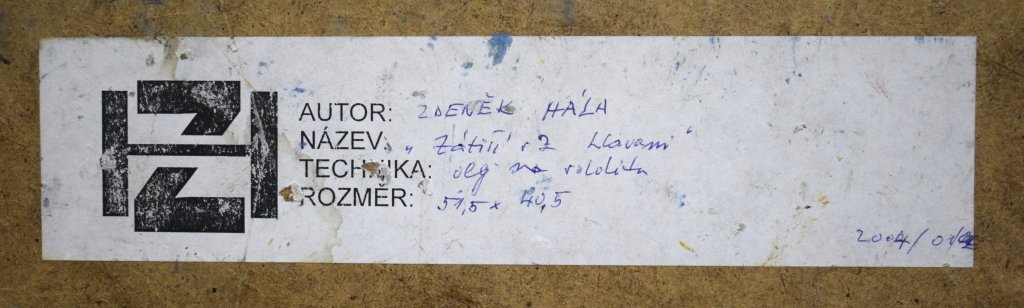 AUTOR: ZDENĚK HÁLA
NÁZEV: „Zátiší s 2 hlavami“
TECHNIKA: olej na sololitu
ROZMĚR: 51,5 x 40,5
2004/